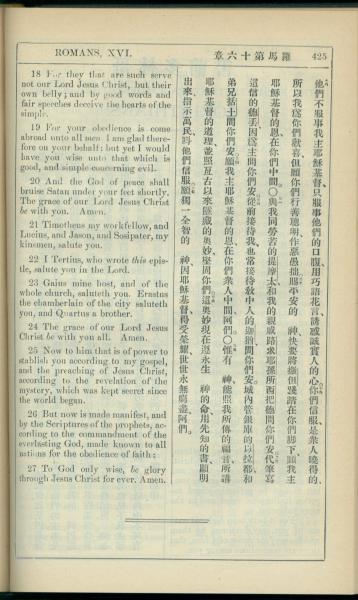 ROMANS, XVI.
章六十第馬羅
425
18 For they that are such serve
not our Lord Jesus Christ, but their
own belly; and by good words and
fair speeches deceive the hearts of the
simple.
19 For your obedience is come
abroad unto all men. I am glad there-
fore on your behalf; but yet I would
have you wise unto that which is
good, and simple concerning evil.
20 And the God of peace shall
bruise Satan under your feet shortly.
The grace of our Lord Jesus Christ
be with you. Amen.
21 Timotheus my workfellow, and
Lucius, and Jason, and Sosipater, my
kinsmen, salute you.
22 I Tertius, who wrote this epis-
tle, salute you in the Lord.
23 Gaius mine host, and of the
whole church, saluteth you. Erastus
the chamberlain of the city saluteth
you, and Quartus a brother.
24 The grace of our Lord Jesus
Christ be with you all. Amen.
25 Now to him that is of power to
stablish you according to my gospel,
and the preaching of Jesus Christ,
according to the revelation of the
mystery, which was kept secret since
the world began.
26 But now is made manifest, and
by the Scriptures of the prophets, ac-
cording to the commandment of the
everlasting God, made known to all
nations for the obedience of faith;
27 To God only wise, be glory
through Jesus Christ for ever. Amen.
他們不服事我主耶穌基督、只服事他們的口腹、用巧語花言、誘惑誠實人的心、你們信服、是衆人曉得的、
所以我爲你們歡喜、但願你們行善聰明、作惡愚拙、賜平安的 神、快要將撒但踐踏在你們脚下、願我主
耶穌基督的恩、在你們中間○與我同勞苦的提摩太、和我的親戚路求耶孫所西把德、問你們安、代筆寫
這信的德丟、因爲主問你們安、從前接待我、也常接待敎中人的迦猶、問你們安、城內管銀庫的以拉都、和
弟兄括土、問你們安、願我主耶穌基督的恩、在你們衆人中間、阿們○惟有 神、能照我所傳的福音、所講
耶穌基督的道理、並照亙古以來隱藏的奧妙、堅固你們、這奧妙現在遵永生 神的命、用先知的書、顯明
出來、指示萬民、叫他們信服、願獨一全智的 神、因耶穌基督得受榮耀、世世永無窮盡、阿們。